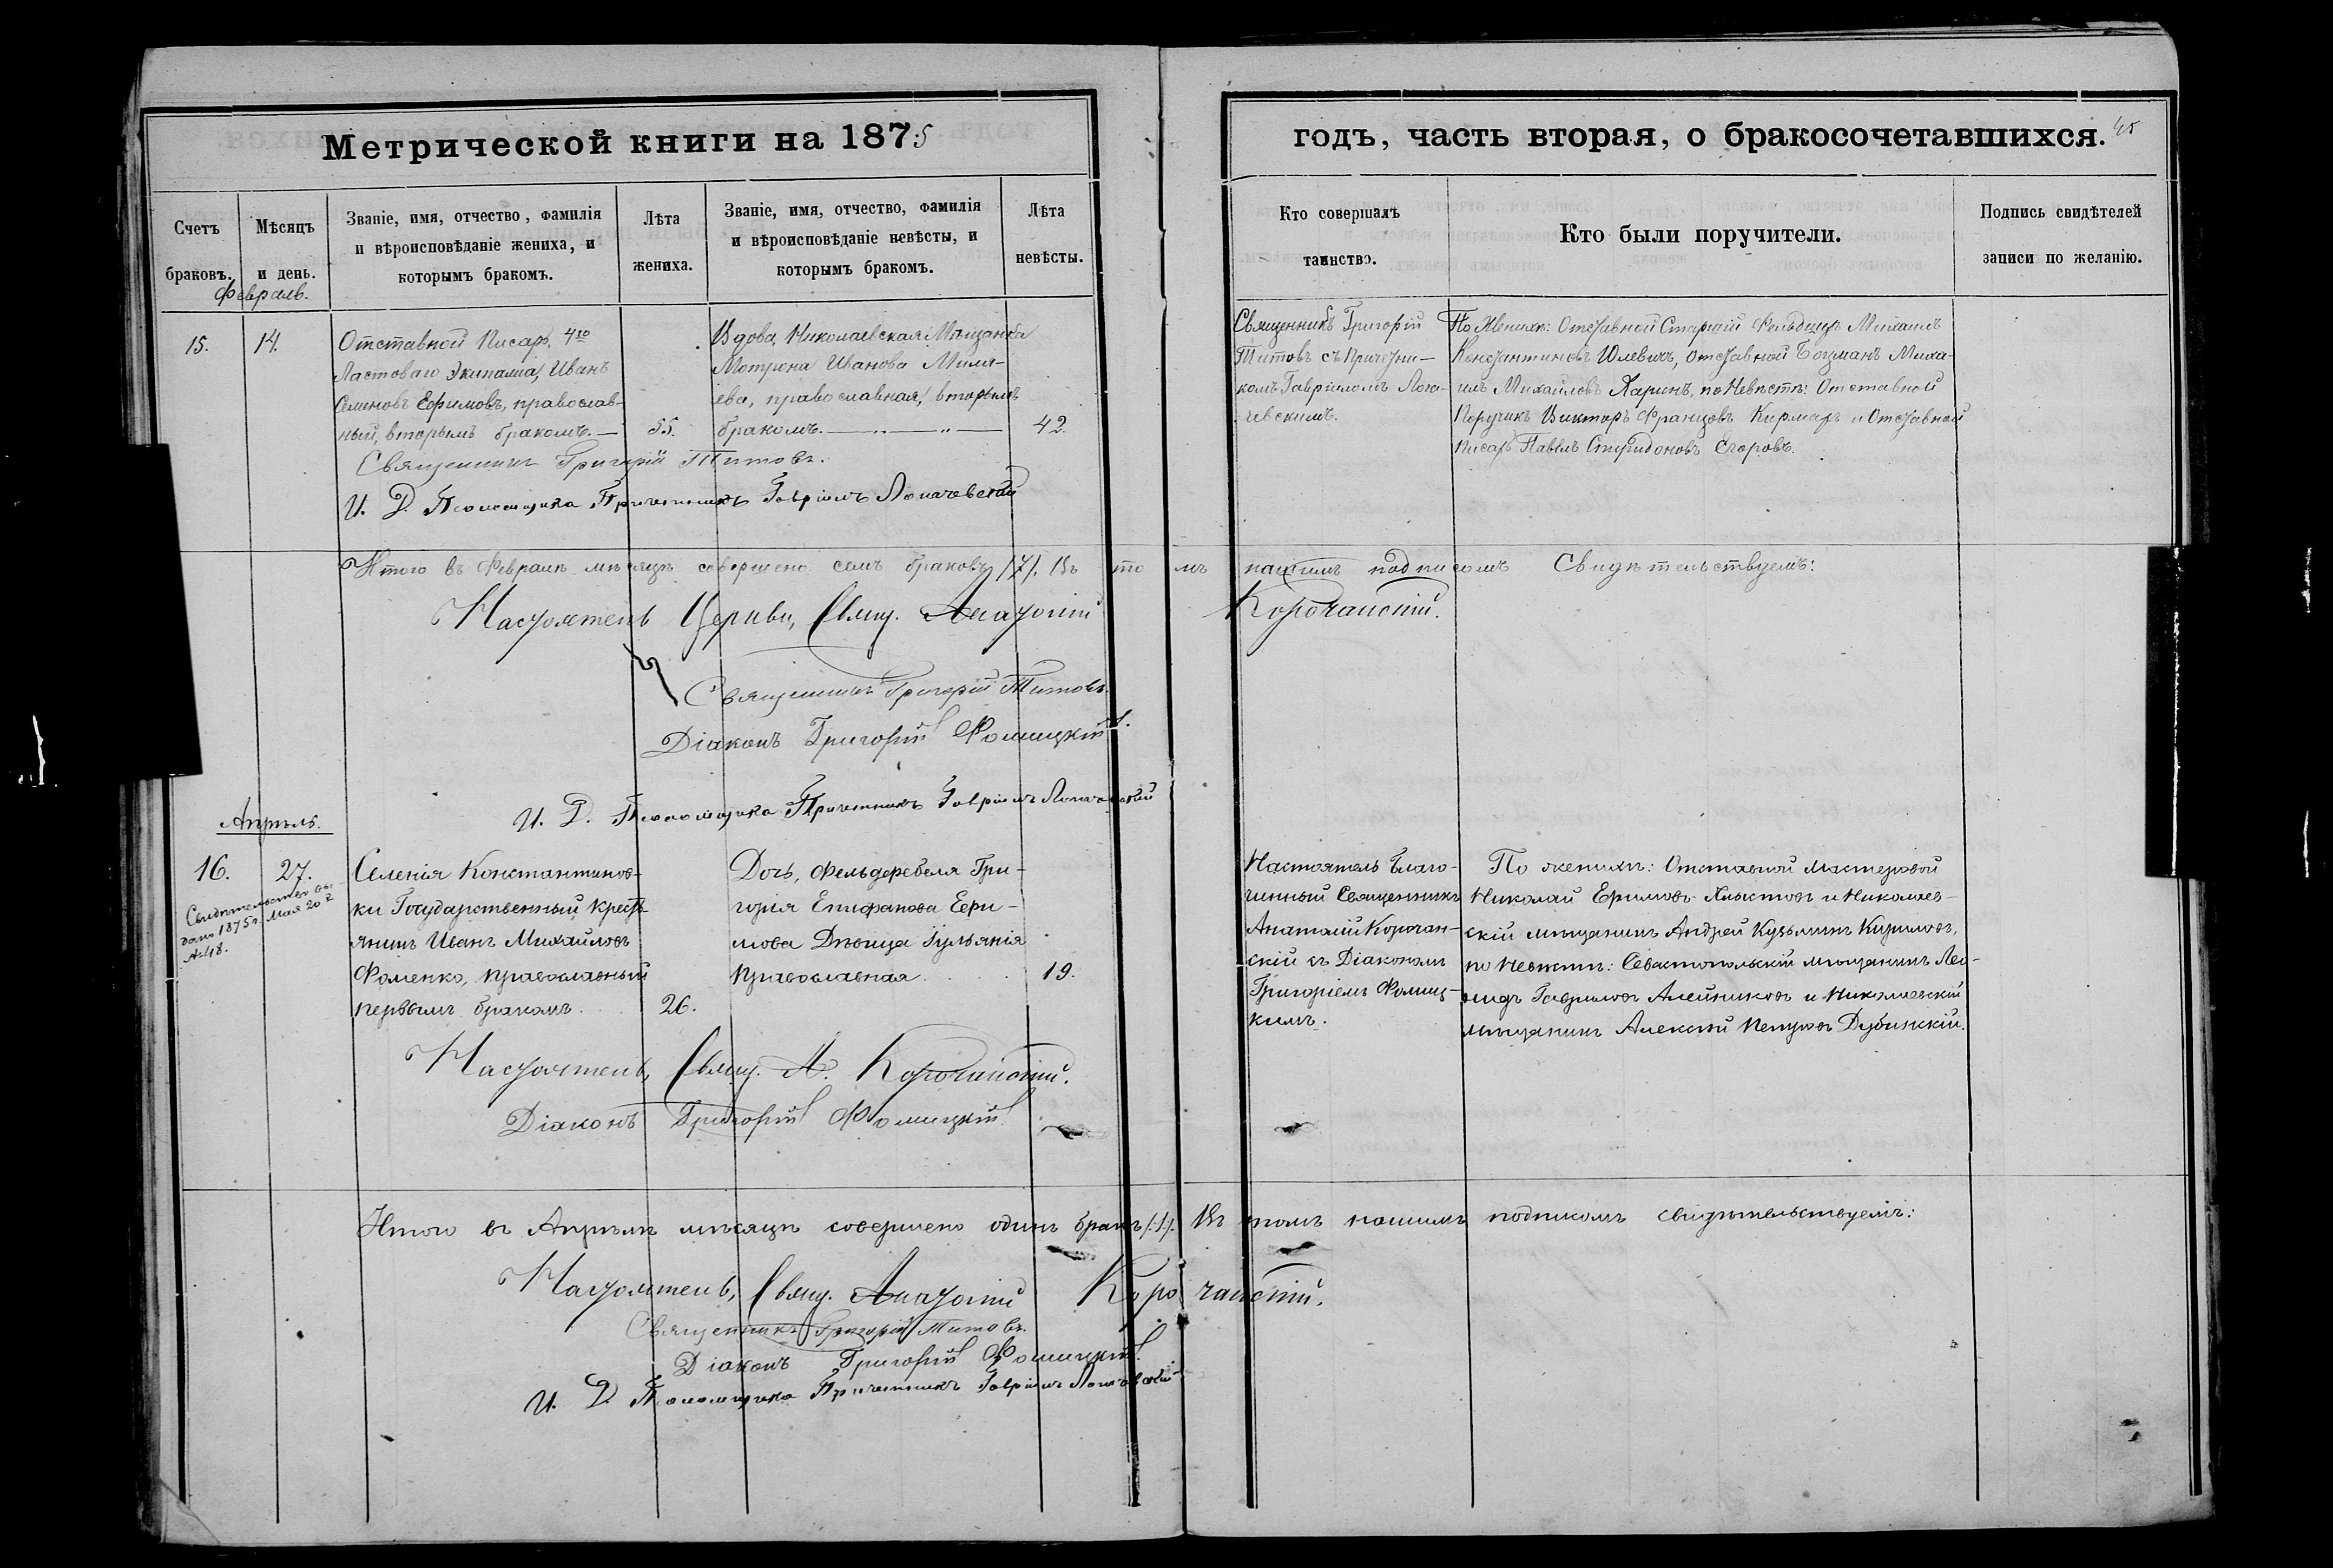 Метрической книги на 1875
годъ, часть вторая, о бракосочетавшихся.
45
Счетъ браковъ.
Мѣсяцъ и день.
Званіе, имя, отчество, фамилія
и вѣроисповѣданіе жениха, и
которымъ бракомъ.
Лѣта
жениха.
Званіе, имя, отчество, фамилія
и вѣроисповѣданіе невѣсты, и
которымъ бракомъ.
Лѣта
невѣсты.
Кто совершалъ
таинство.
Кто были поручители.
Подпись свидѣтелей
записи по желанію.
Февраль.
15.
14.
Отставной Писарь, 4го
Ластоваго Экипажа, Иванъ
Семеновъ Ефимовъ, православ-
ный, вторымъ бракомъ.
55.
Вдова, Николаевская Мѣщанка
Мотрона Иванова
православная, вторымъ
бракомъ.
42.
Священникъ Григорій
Титовъ съ Причетни-
комъ Гавріиломъ Лопа-
чевскимъ.
По Женихѣ: Отставной Старшій Фельдшеръ Михаилъ
Константиновъ Юлевичъ, Отставной Боцманъ Миха-
илъ Михайловъ Харинъ, по Невѣстѣ: Отставной
Поручикъ Викторъ Францовъ Кирмаръ и Отставной
Писарь Павелъ Спиридоновъ Егоровъ.
Священникъ Григорій Титовъ.
И. Д. Псаломщика Причетникъ Гавріилъ Лопачевскій
Итого въ Февралѣ мѣсяцѣ совершено семь браковъ /7/. Въ томъ нашимъ подписомъ Свидѣтельствуемъ:
Настоятель Церкви, Свящ. Анатолій Корочанскій.
Священникъ Григорій Титовъ.
Діаконъ Григорій Фомицкій.
И. Д. Псаломщика Причетникъ Гавріилъ Лопачевскій
Апрѣль.
16.
27.
Свидѣтельство вы-
дано 1875 г. Мая 20
№ 48.
Селенія Константинов-
ки Государственный Крест-
янинъ Иванъ Михайловъ
Фоменко, православный
первымъ бракомъ.
26.
Дочь, Фельдфебеля Гри-
горія Епифанова Ефи-
мова Дѣвица Іульянія
православная.
19.
Настоятель Благо-
чинный Священникъ
Анатолій Корочан-
скій съ Діакономъ
Григоріемъ Фомиц-
кимъ.
По женихѣ: Отставной Мастеровой
Николай Ефимовъ Хлыстовъ и Николаев-
скій мѣщанинъ Андрей Кузьминъ Кириловъ,
по Невѣстѣ: Севастопольскій мѣщанинъ Лео-
нидъ Гавриловъ Алейниковъ и Николаевскій
мѣщанинъ Алексѣй Петровъ Дубинскій.
Настоятель, Свящ. А. Корочанскій.
Діаконъ Григорій Фомицкій.
Итого въ Апрѣлѣ мѣсяцѣ совершено одинъ бракъ /1/. Въ томъ нашимъ подписомъ свидѣтельствуемъ:
Настоятель, Свящ. Анатолій Корочанскій.
Священникъ Григорій Титовъ.
Діаконъ Григорій Фомицкій.
И. Д. Псаломщика Причетникъ Гавріилъ Лопачевскій